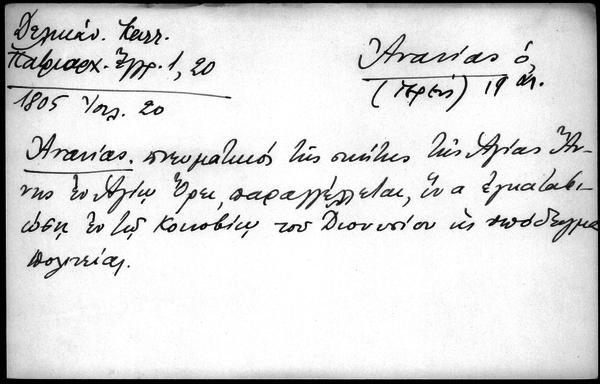 Δελικάν. Καλλ.
Πατριαρχ. Ἔγγρ. 1, 20
1805 Ἰουλ. 20
Ἀνανίας ὁ,
(Ἱερεύς) 19 αἰ.
Ἀνανίας. πνευματικός τῆς σκήτης τῆς Ἁγίας Ἄν-
νης ἐν Ἁγίῳ Ὄρει, παραγγέλλεται, ἵνα ἐγκαταβι-
ώσῃ ἐν τῷ Κοινοβίῳ τοῦ Διονυσίου ὡς ὑπόδειγμα
πολιτείας.